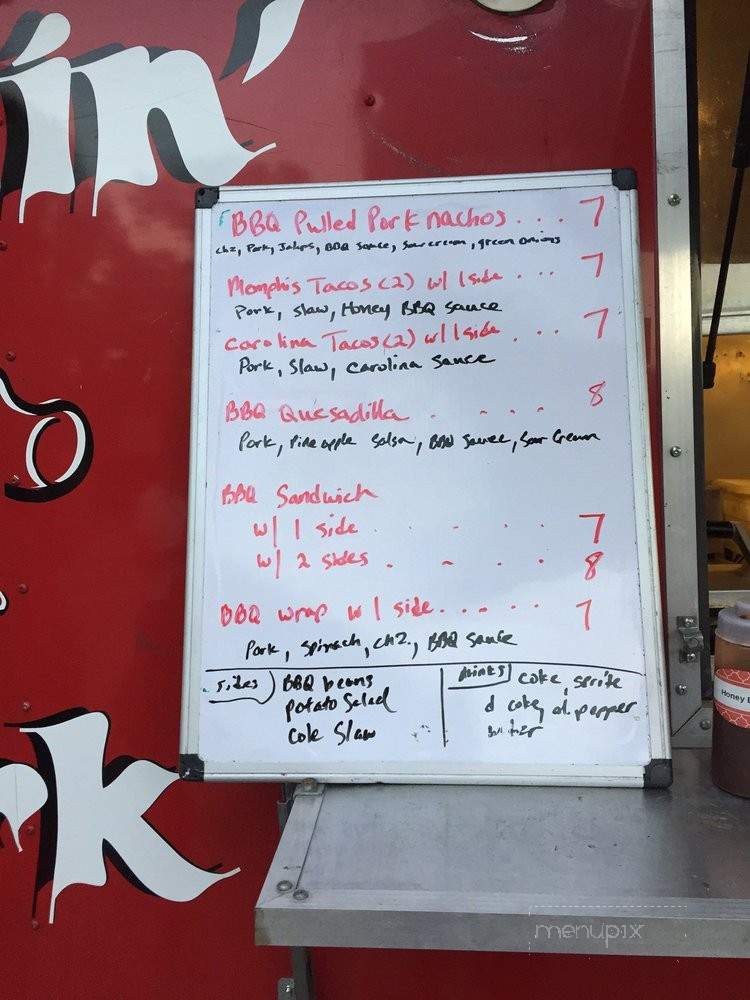 in'
BBQ Pulled Pork nachos . . . 7
chz, Pork, Jalaps, BBQ Sauce, Sour cream, green onions
Memphis Tacos (2) w/ 1 side . . . 7
Pork, Slaw, Honey BBQ Sauce
Carolina Tacos (2) w/ 1 side . . . 7
Pork, Slaw, Carolina Sauce
BBQ Quesadilla . . . . 8
Pork, Pineapple Salsa, BBQ Sauce, Sour Cream
BBQ Sandwich
w/ 1 side . . . . . 7
w/ 2 sides . . . . 8
BBQ wrap w/ 1 side . . . . . 7
Pork, Spinach, chz., BBQ Sauce
Sides
BBQ beans
potato Salad
Cole Slaw
drinks
coke, sprite
d coke, d. pepper
rk
Honey
menupix